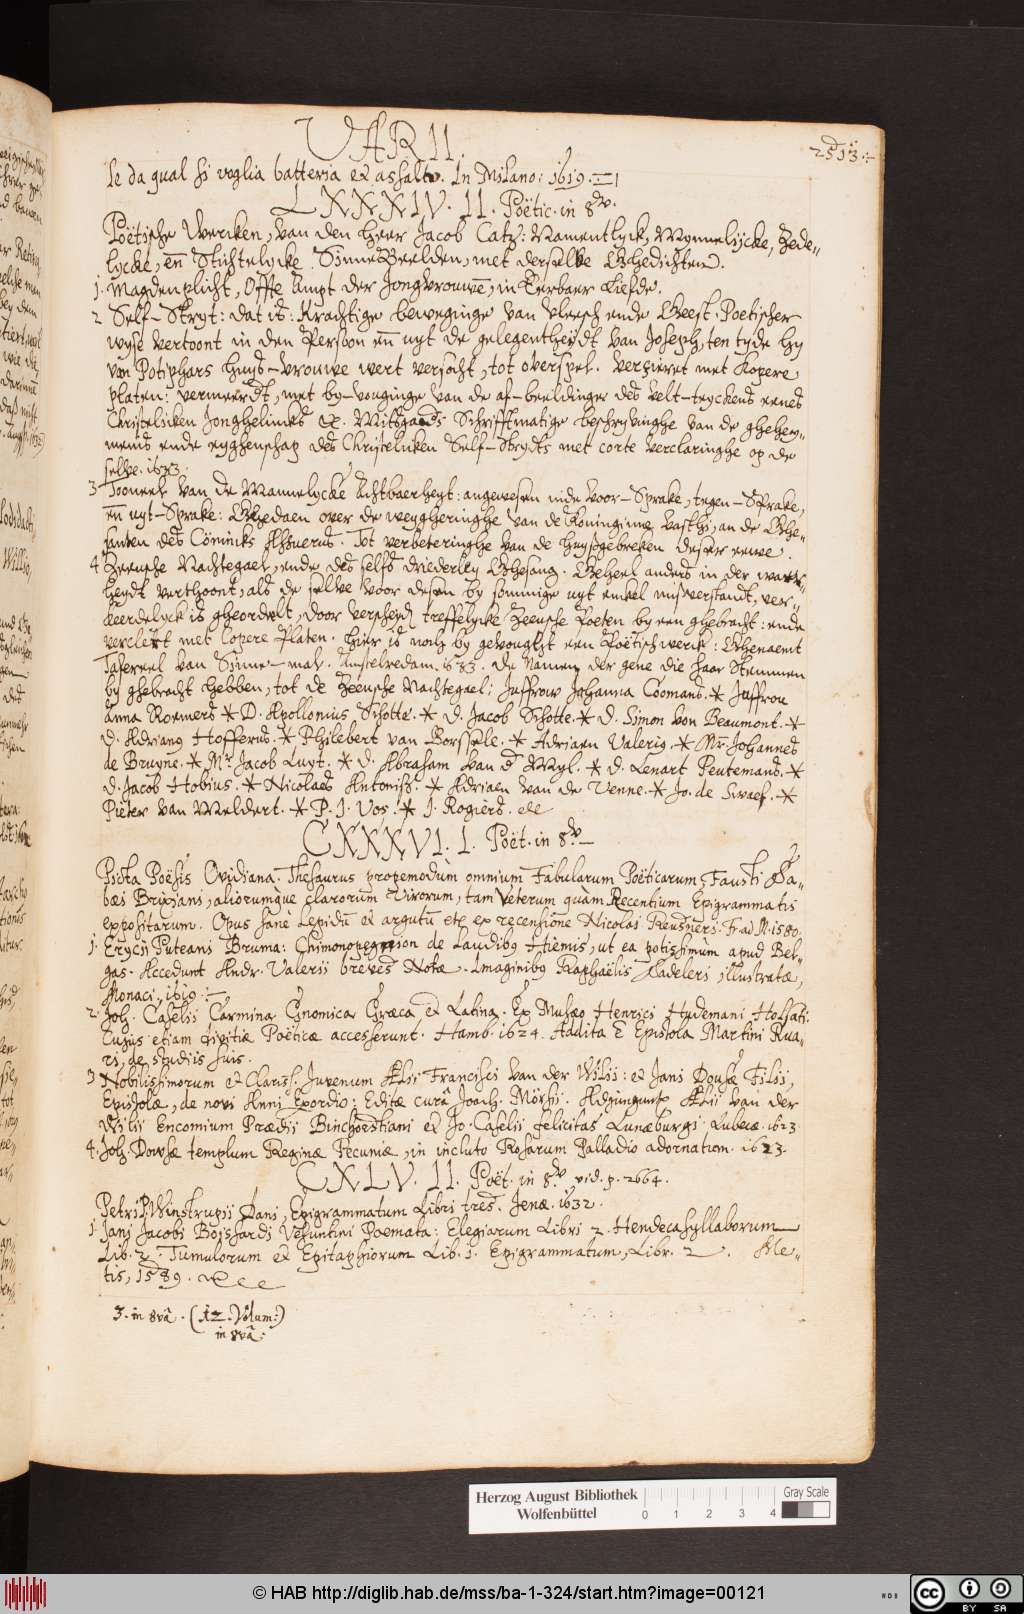 VARII.
2513.
le da qual si voglia batteria et assalto. In Milano: 1619.
LXXXIV. 11. Poëtic. in 8vo.
Poëtische Wercken, van den Heer Jacob Catz: Namentlyck, Mynnelijcke, Zede-
lycke, eñ Stichtelycke Sinne-Beelden, met derselve Ghedichten.
1. Magdenplicht, Offte Ampt der Jongvrouwē, in Eerbaer Liefde.
2 Self-Stryt: dat is: Krachtige beweginge van vleesch ende Gheest. Poetischer
wyse vertoont in den Persoon eñ uyt de gelegentheydt van Joseph, ten tyde hy
van Potiphars huys-vrouwe wert versocht, tot overspel. Verçieret met Kopere
platen: vermeerdt, met by-vouginge van de af-beeldinger des velt-teyckens eenes
Christelicken Jonghelincks &. Mitsgads Schrifftmatige beschryvinghe van de ghehey-
menis ende eyghenschap des Christelicken Self-Strydts met corte verclaringhe op de
selve. 1633.
3 Tooneel van de Mannelycke Achtbaerheyt: angewesen inde Voor-Sprake, tegen-Sprake,
eñ uyt-Sprake: Ghedaen over de weygheringhe van de Koninginne Vasthi, an de Ghe-
santen des Cöninks Assuerus. Tot verbeteringhe van de huyßgebreken deser eewe.
4 Zeeusche Nachtegael, ende des selfs driederley Ghesang. Geheel anders in der waer-
heydt verthoont, als de selve voor desen by sommige uyt enkel missverstandt, ver-
keerdelyck is gheordelt, door verscheydē treffelycke Zeeusche Poeten by een ghebracht: ende
verciert met Copere Platen. Hier is noch by gevought een Poëtisch werck: Ghenaemt
Tafereel van Sinne-mal. Amstelredam. 1633. De Namen der gene die haer Stemmen
by ghebracht hebben, tot de Zeeusche Nachtegael: Juffrow Johanna Coomans. * Juffrou
Anna Roemers * D. Apollonius Schotte. * D. Jacob Schotte. * D. Simon von Beaumont. *
D. Adrianus Hofferus. * Philebert van Borssele. * Adriaen Valerius. * Mr. Johannes
de Bruyne. * Mr. Jacob Luyt. * D. Abraham van d' Myl. * D. Lenart Peutemans. *
D. Jacob Hobius. * Nicolaes Antoniß. * Adriaen van de Venne. * Jo. de Swaef. *
Pieter van Meldert. * P. J. Vos. * J. Rogiers. etc
CXXXVI. 1. Poët. in 8vo
Picta Poësis Ovidiana. Thesaurus propemodùm omnium Fabularum Poëticarum, Fausti Sa-
bæi Brixiani, aliorumque clarorum Virorum, tam Veterum quàm Recentium Epigrammatis
expositarum. Opus sanè lepidū et argutū etc ex recensione Nicolai Reusneri. Fr. ad M. 1580.
1. Erycii Puteani Bruma: Chimonopegnion de Laudibg Hiemis, ut ea potissimùm apud Bel-
gas. Accedunt Andr. Valerii breves Notæ. Imaginibg Raphaëlis Sadeleri illustratæ,
Monaci, 1619.
2. Joh. Caselii Carmina Gnomica Græca et Latina. Ex Musæo Henrici Hudemani Holsati.
Cujus etiam divitiæ Poëticæ accesserunt. Hamb. 1624. Addita E Epistola Martini Rua-
ri, de studiis suis.
3 Nobilissimorum et Clariss. Juvenum Ælii Francisci van der Wilii: et Jani Dousæ Filii,
Epistolæ, de novi Anni Exordio: Editæ curâ Joach. Mörsii. Adjungunt Ælii van der
Wilii Encomium Prædii Binchorstiani et Jo. Caselii felicitas Lunæburgi. Lubecæ. 1623.
4. Joh. Dousæ templum Reginæ Pecuniæ, in incluto Rosarum Palladio adornatum. 1623.
CXLV. 11. Poët. in 8vo vid. p. 2664.
Petri Winstrupii Dani, Epigrammatum Libri tres. Jenæ. 1632.
1. Jani Jacobi Boissardi Vesuntini Poemata: Elegiarum Libri 2. Hendecasyllaborum
Lib. 2. Tumulorum et Epitaphiorum Lib. 1. Epigrammatum, Libr. 2. Me-
tis, 1589.
3. in 8vâ. (12. Volum:)
in 8vâ:
Herzog August Bibliothek
Wolfenbüttel
0 1 2 3 4
Gray Scale
© HAB http://diglib.hab.de/mss/ba-1-324/start.htm?image=00121
cc BY SA